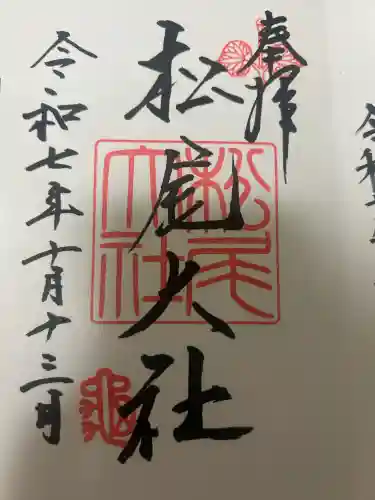 奉拝
松尾大社
松尾大社
令和七年十月十三日
亀
令和